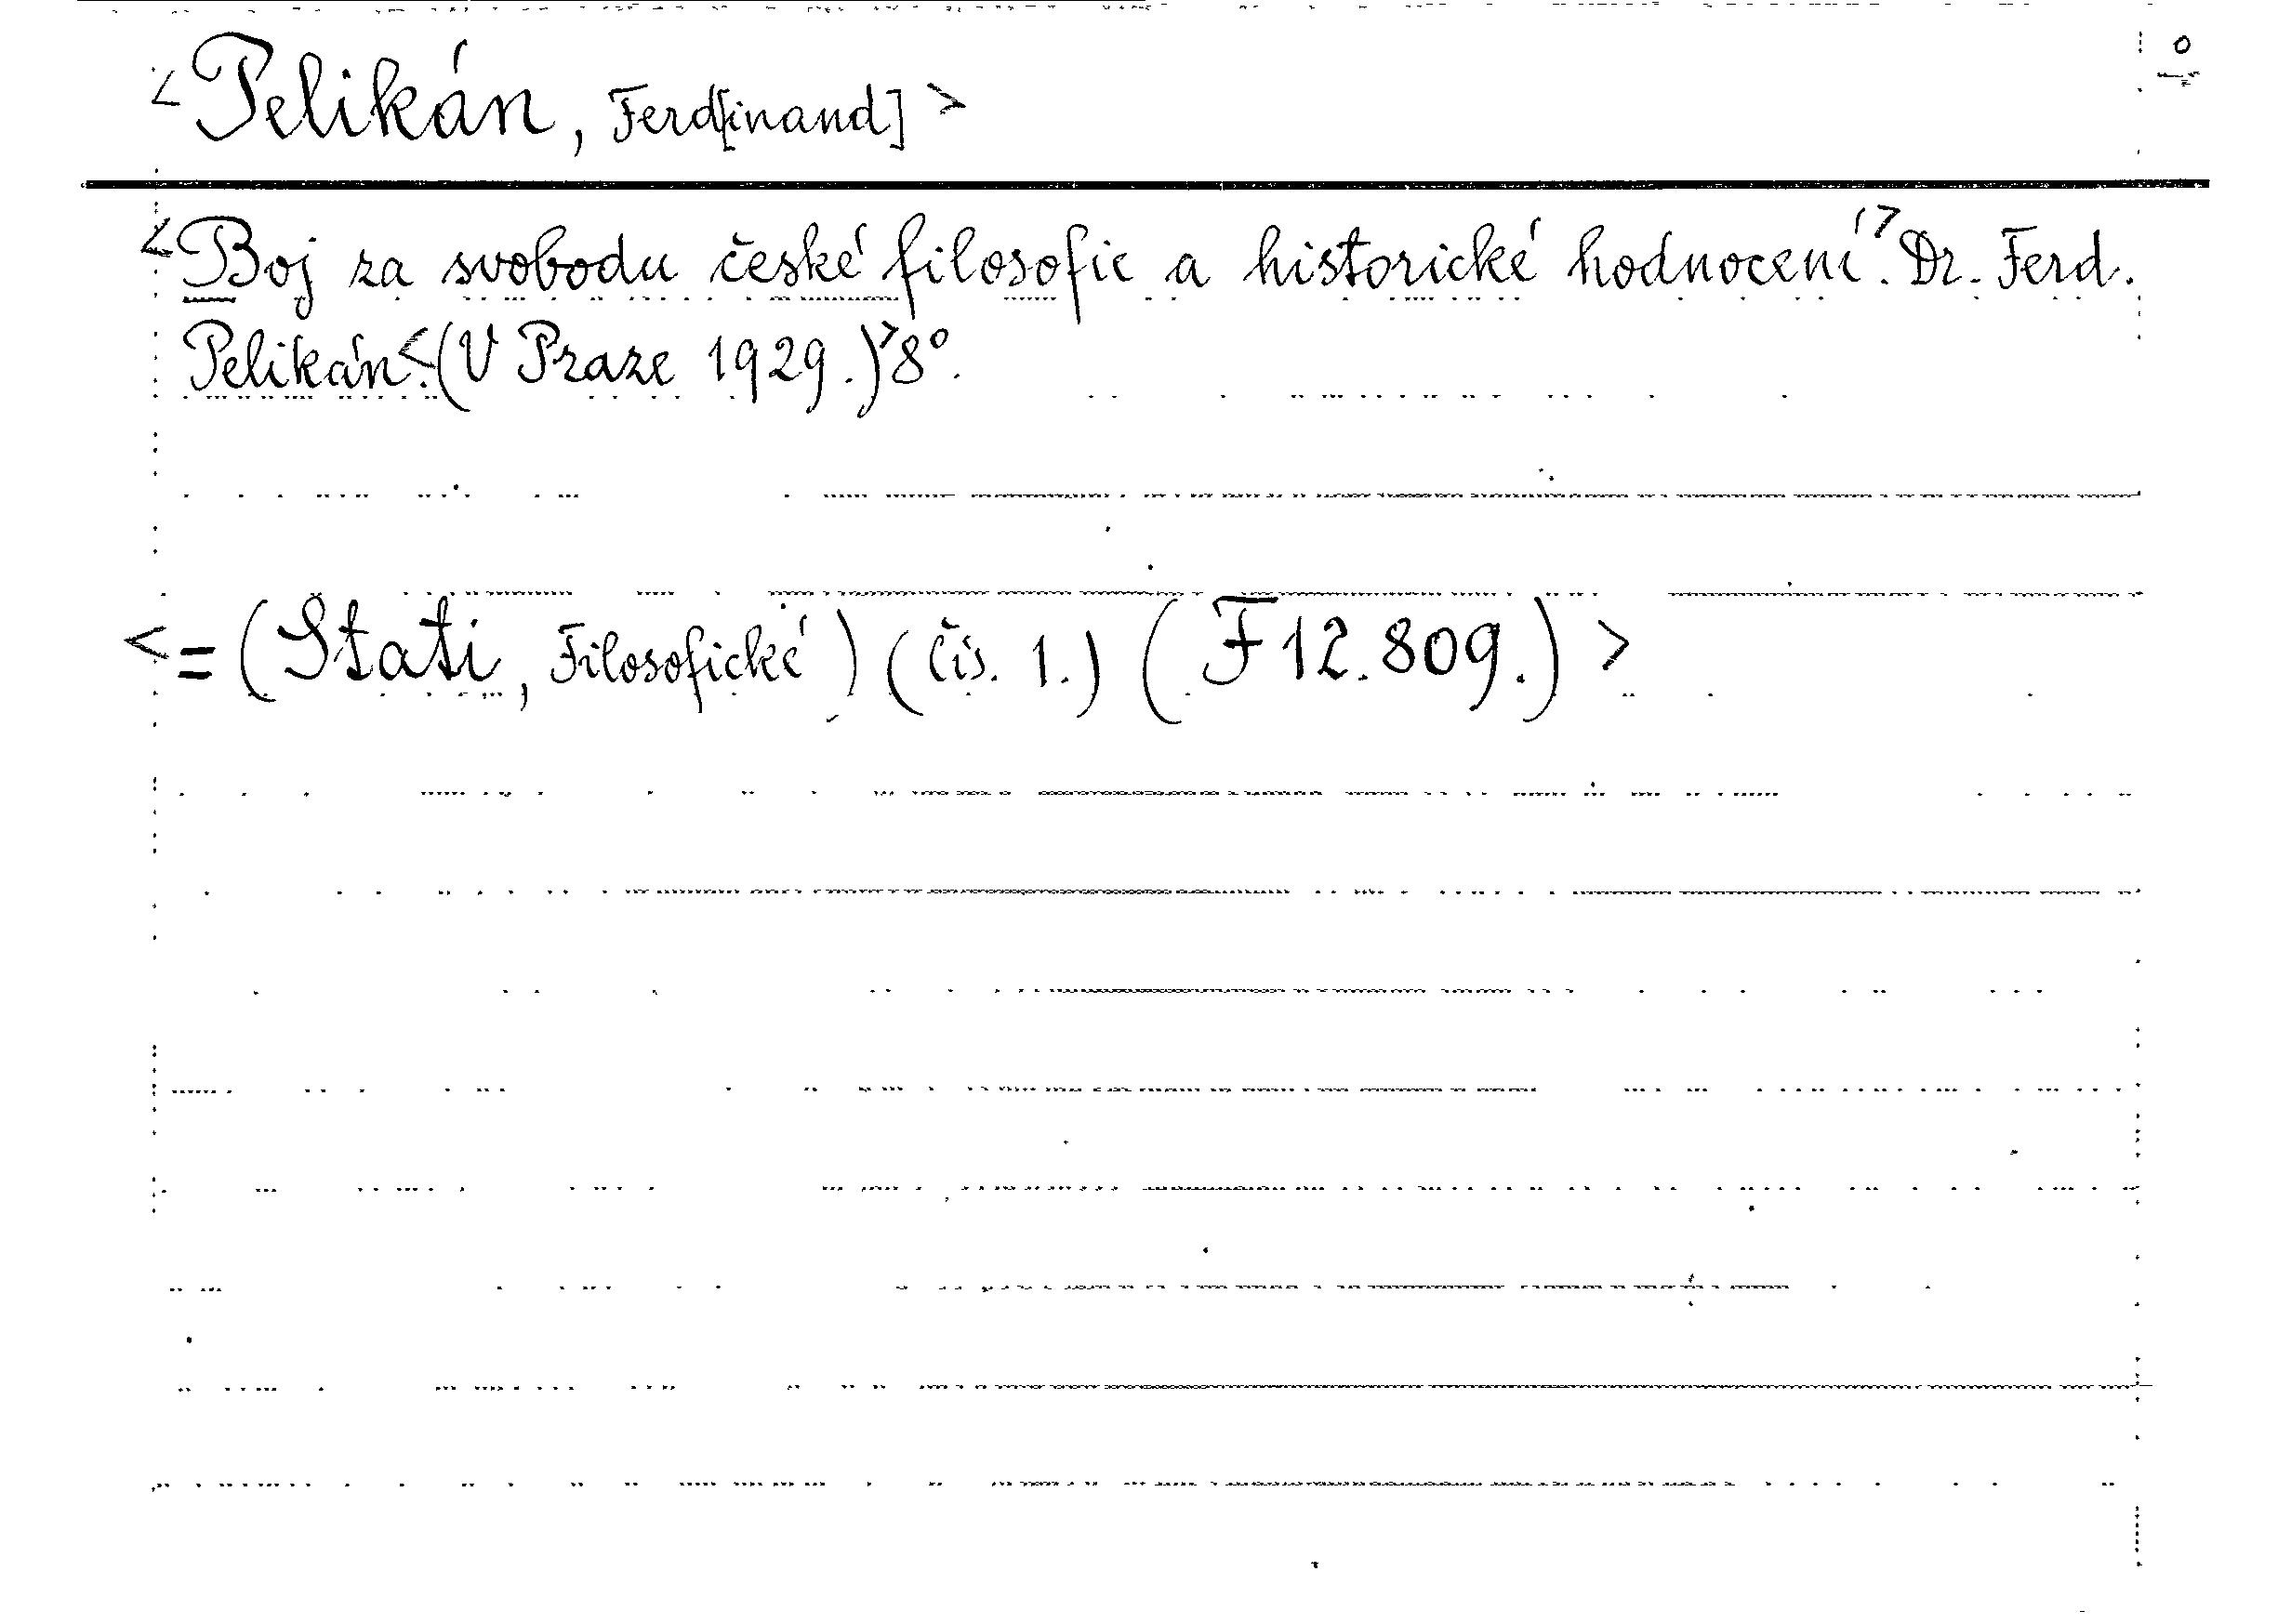 <Pelikán, Ferd[inand]>
o
<Boj za svobodu české filosofie a historické hodnocení.> Dr. Ferd.
Pelikán.<(V Praze 1929.)>8°.
<=(Stati, Filosofické) (čís. 1.) (F12.809.)>